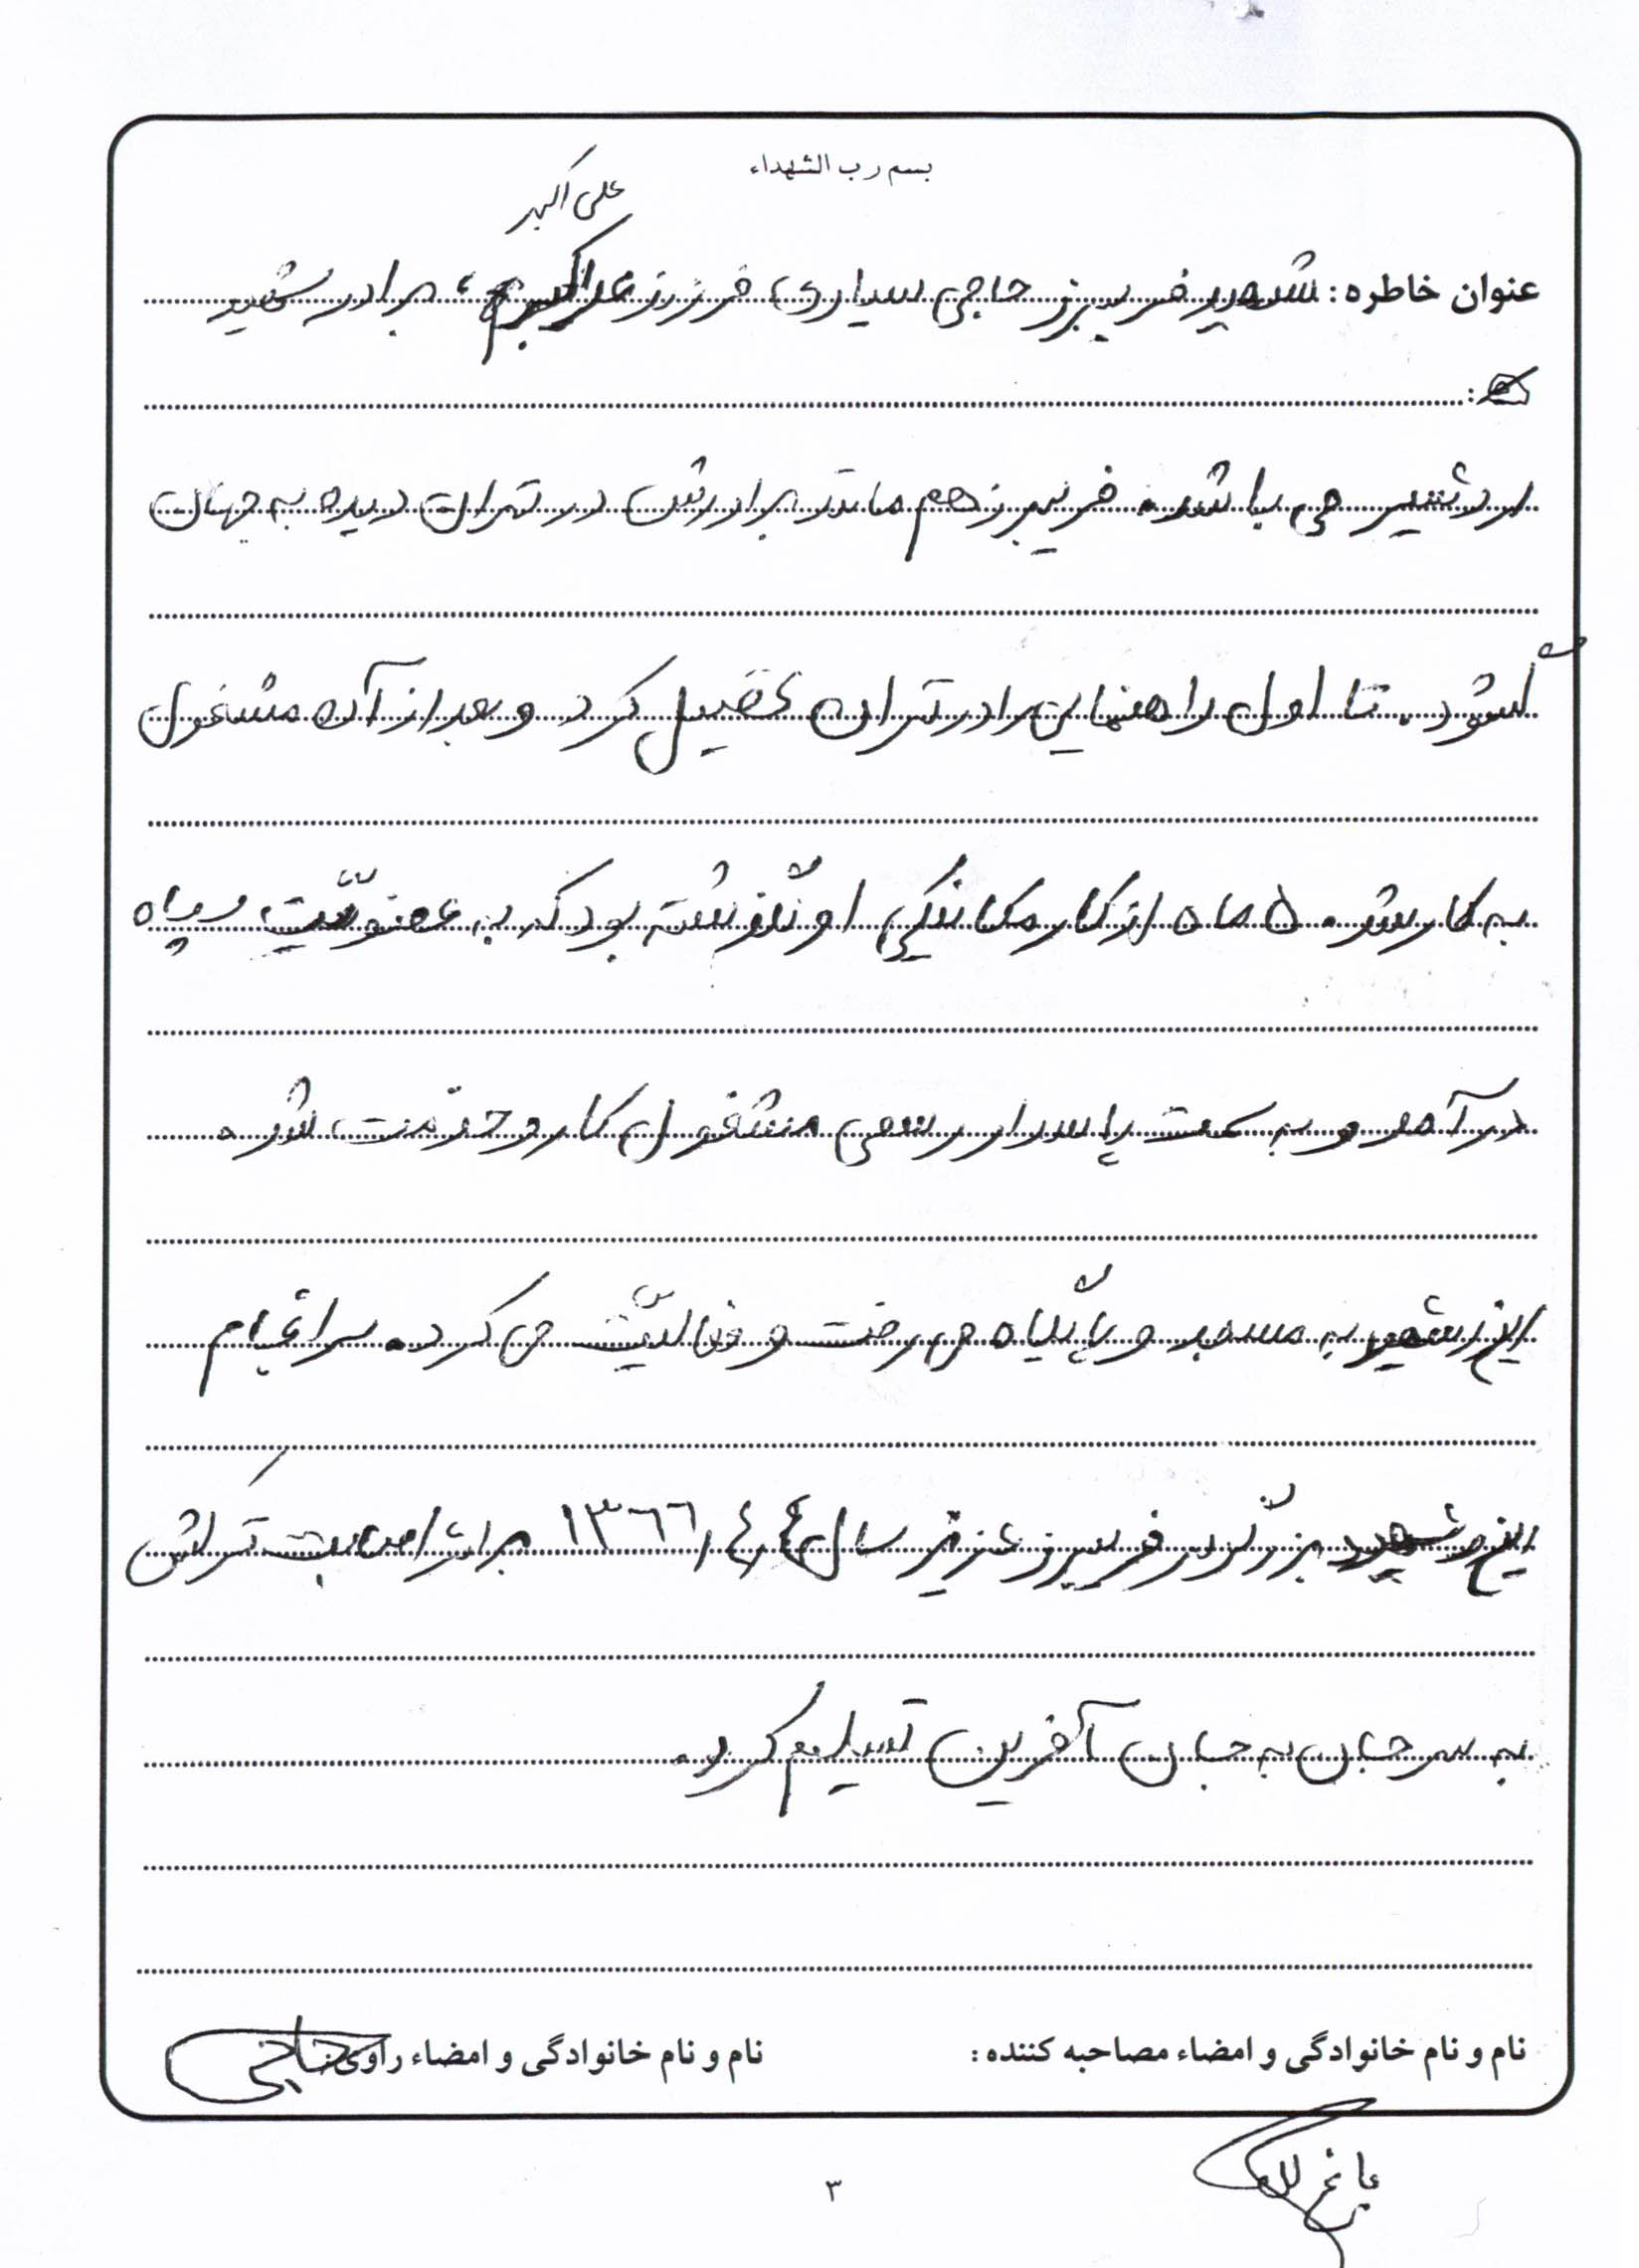 بسم رب الشهداء
علی اکبر
عنوان خاطره: شهید فریبرز حاجی سیاری، فرزند ، برادر شهید
اردشیر می باشد. فریبرز هم مانند برادرش در تهران دیده به جهان
گشود. تا اول راهنمایی را در تهران تحصیل کرد و بعد از آن مشغول
به کار شد. ۵ ماه از کار مکانیکی او نگذشته بود که به عضوّیت سپاه
در آمد و به سمت پاسدار رسمی مشغول کار و خدمت شد.
این شهید به مسجد و پایگاه می رفت و فعالیّت می کرد. سرانجام
این شهید بزرگوار فریبرز عزیز سال ۱۳۶۶/۴/۴ بر اثر اصابت ترکش
به سر جان به جان آفرین تسلیم کرد.
نام و نام خانوادگی و امضاء مصاحبه کننده: نام و نام خانوادگی و امضاء راوی: حاجی
۳